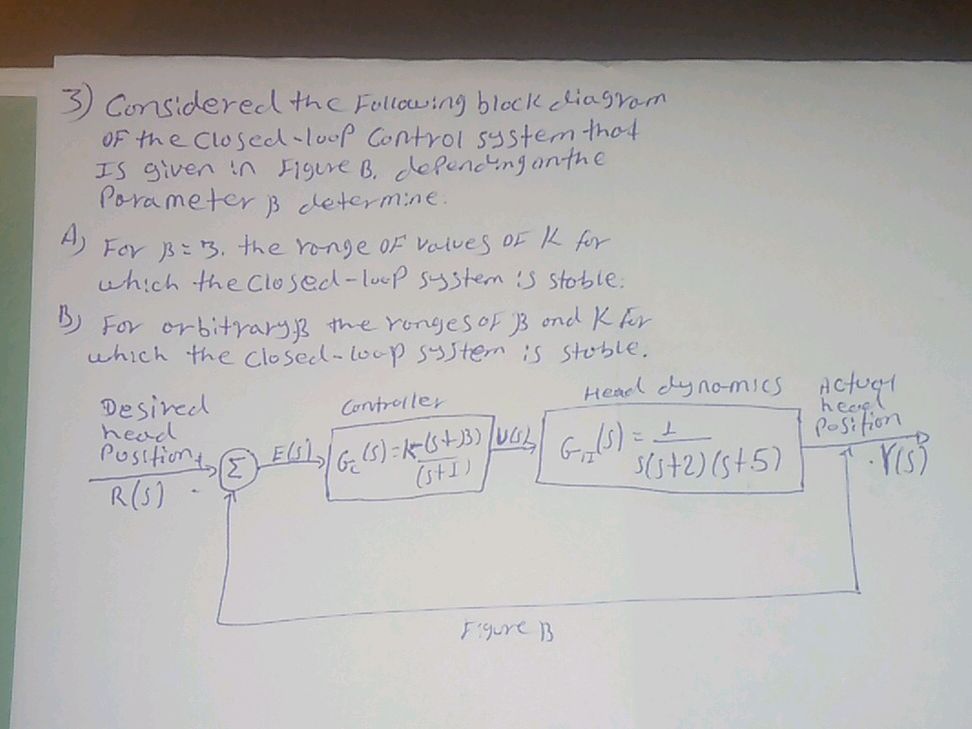 3) Considered the Following block diagram
OF the Closed-loop Control system that
Is given in Figure B. depending on the
Parameter β determine.
A) For β = 3. the range OF values OF K for
which the Closed-loop system is stable.
B) For arbitrary β the ranges of β and K for
which the Closed-loop system is stable.
Desired
head
Position
R(s)
+
-
Σ
E(s)
Controller
G_c(s) = K (s+β)
(s+1)
U(s)
Head dynamics
(s) = 1
s(s+2)(s+5)
Actual
head
Position
Y(s)
Figure B